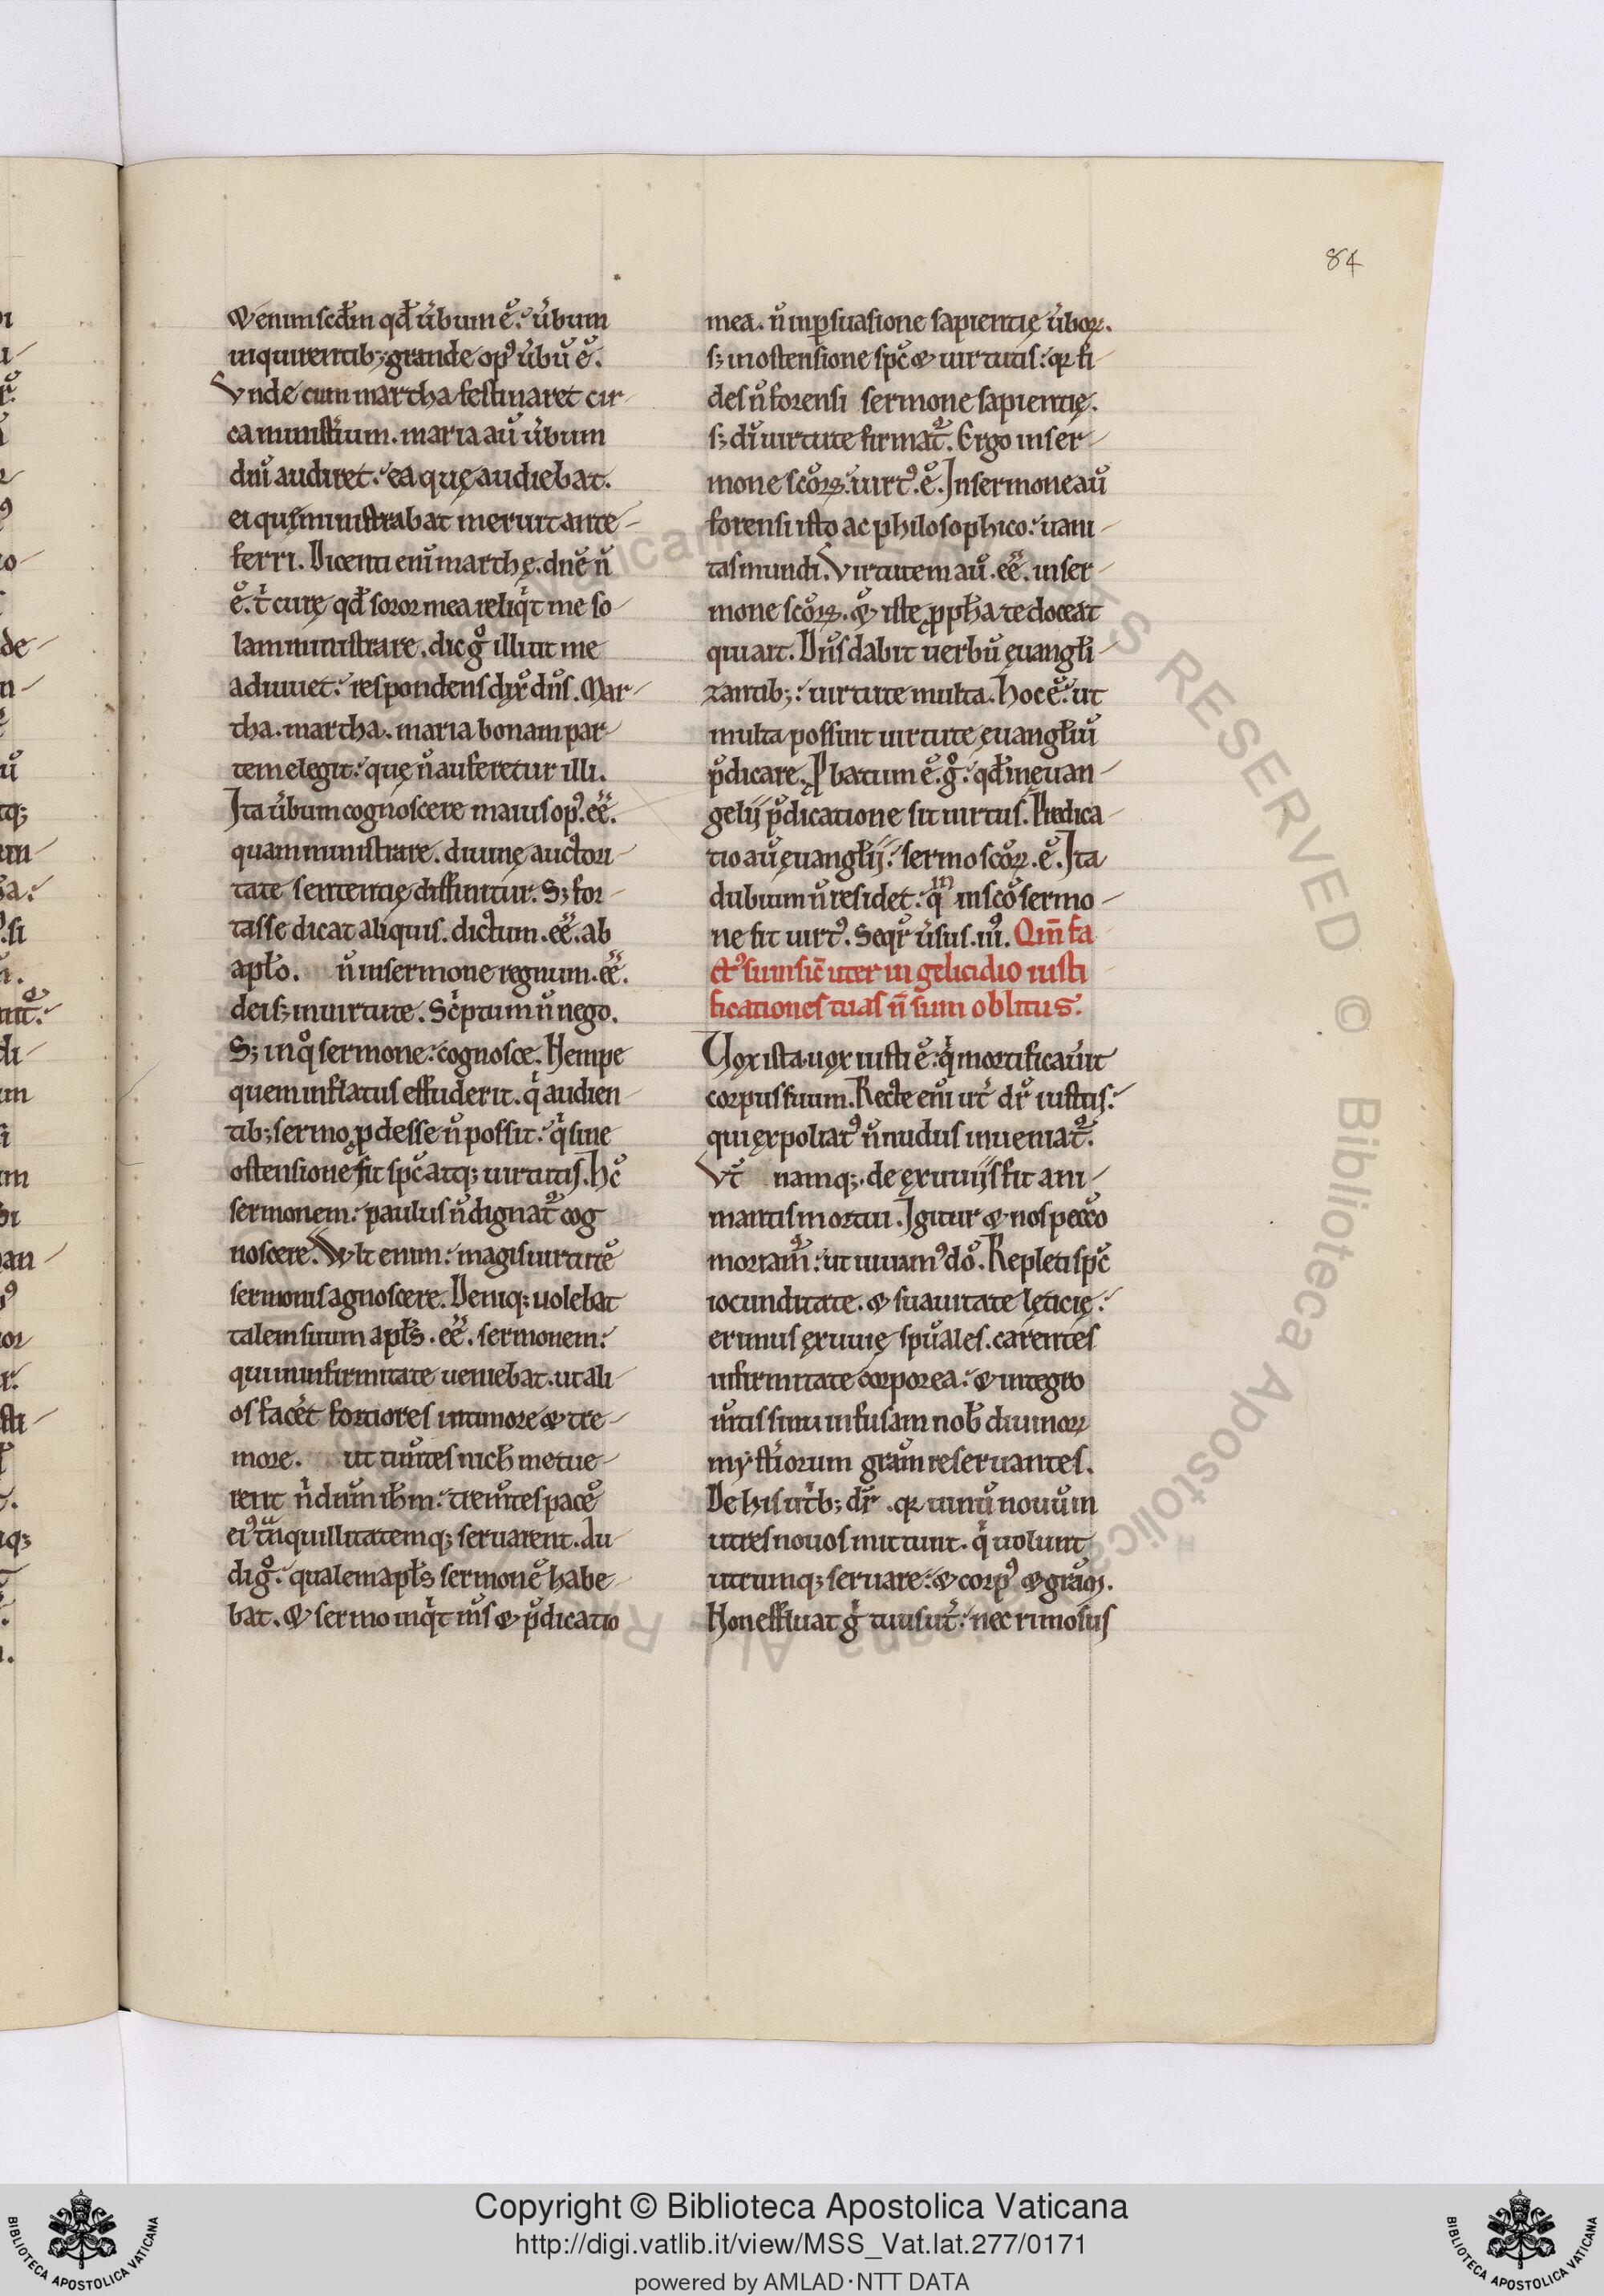 84
& enim scďm qď úbum ē. úbum
inquirentib; grande op⁹ úbū ē.
Vnde cum martha festinaret cir
ca ministium. maria aū úbum
dni audiret. ea quę audiebat.
ei quę ministrabat meruit ante
ferri. Dicenti enī marthę. dnē n̄
ē. t̓ curę qď soror mea reliq̓t me so
lam ministrare. dic g̊ illi ut me
adiuuet. respondens dix̄ dn̄s. Mar
tha. martha. maria bonam par
tem elegit. quę n̄ auferetur illi.
Ita úbum cognoscere maius op⁹. eē.
quam ministrare. diuinę auctori
tate sententię diffinitur. S; for
tasse dicat aliquis. dictum. eē. ab
apło. n̄ in sermone regnum. eē.
dei s; in uirtute. Sc̓ptum n̄ nego.
S; in q̊ sermone. cognosce. Nempe
quem inflatus effuderit. q̓ audien
tib; sermo ꝓdesse n̄ possit. q̓ sine
ostensione sit sp̄c atq; uirtutis. hc̄
sermonem. paulus n̄ dignat̄ cog
noscere. Vult enim. magis uirtutē
sermonis agnoscere. Deniq; uolebat
talem suum apłs. eē. sermonem.
qui in infirmitate ueniebat. ut ali
os facēt fortiores in timore & tre
more. ut tim̄tes nich̄ metue
rent n̓ dn̄m ih̄m. trem̄tes pacē
ei⁹ tnquillitatemq; seruarent. Au
di g̊. qualem apłs sermonē habe
bat. & sermo inq̓t m̄s & p̄dicatio
mea. n̄ in ꝑsuasione sapientię úboꝝ.
s; in ostensione sp̄c & uirtutis. qꝛ fi
des n̄ forensi sermone sapientię.
s; dī uirtute firmat̄. Ergo in ser
mone scōꝝ. uirt⁹. ē. In sermone aū
forensi isto ac philosophico. uani
tas mundi. Virtutem aū. eē. in ser
mone scōꝝ. & iste ꝓpħa te doceat
qui ait. Dn̄s dabit uerbū ęuangłi
zantib;. uirtute multa. hoc ē. ut
multa possint uirtute ęuangłiū
p̄dicare. ꝓbatum ē. g̊. qď in ęuan
gelij p̄dicatione sit uirtus. Predica
tio aū ęuangłij. sermo scōꝝ. ē. Ita
dubium n̄ residet. qͫ in scō sermo
ne sit uirt⁹. Seqr̄ úsus. iij. Qm̄ fa
ct⁹ sum sic̄ uter in gelicidio iusti
ficationes tuas n̄ sum oblitus.
Uox ista. uox iusti ē. q̓ mortificaúit
corpus suum. Recte enī ut̓ dr̄ iustus.
qui ęxpoliat⁹ n̄ nudus inueniat̄.
Vt̓ namq;. de ęxuuijs fit ani
mantis mortui. Igitur & nos peccō
moriam̄. ut uiuam⁹ dō. Repleti sp̄c
iocunditate. & suauitate lęticię.
erimus ęxuuię sp̄uales. carentes
infirmitate corporea. & integro
m̄tis sinu infusam nob̄ diuinoꝝ
mystiorum grām reseruantes.
De his ut̓b; dr̄. qꝛ uinū nouum in
utres nouos mittunt. q̓ uolunt
utrumq; seruare. & corp⁹ & grām.
Non effluat g̊ tuus ut̓. nec rimosus
Copyright © Biblioteca Apostolica Vaticana
http://digi.vatlib.it/view/MSS_Vat.lat.277/0171
powered by AMLAD·NTT DATA
BIBLIOTECA APOSTOLICA VATICANA
BIBLIOTECA APOSTOLICA VATICANA